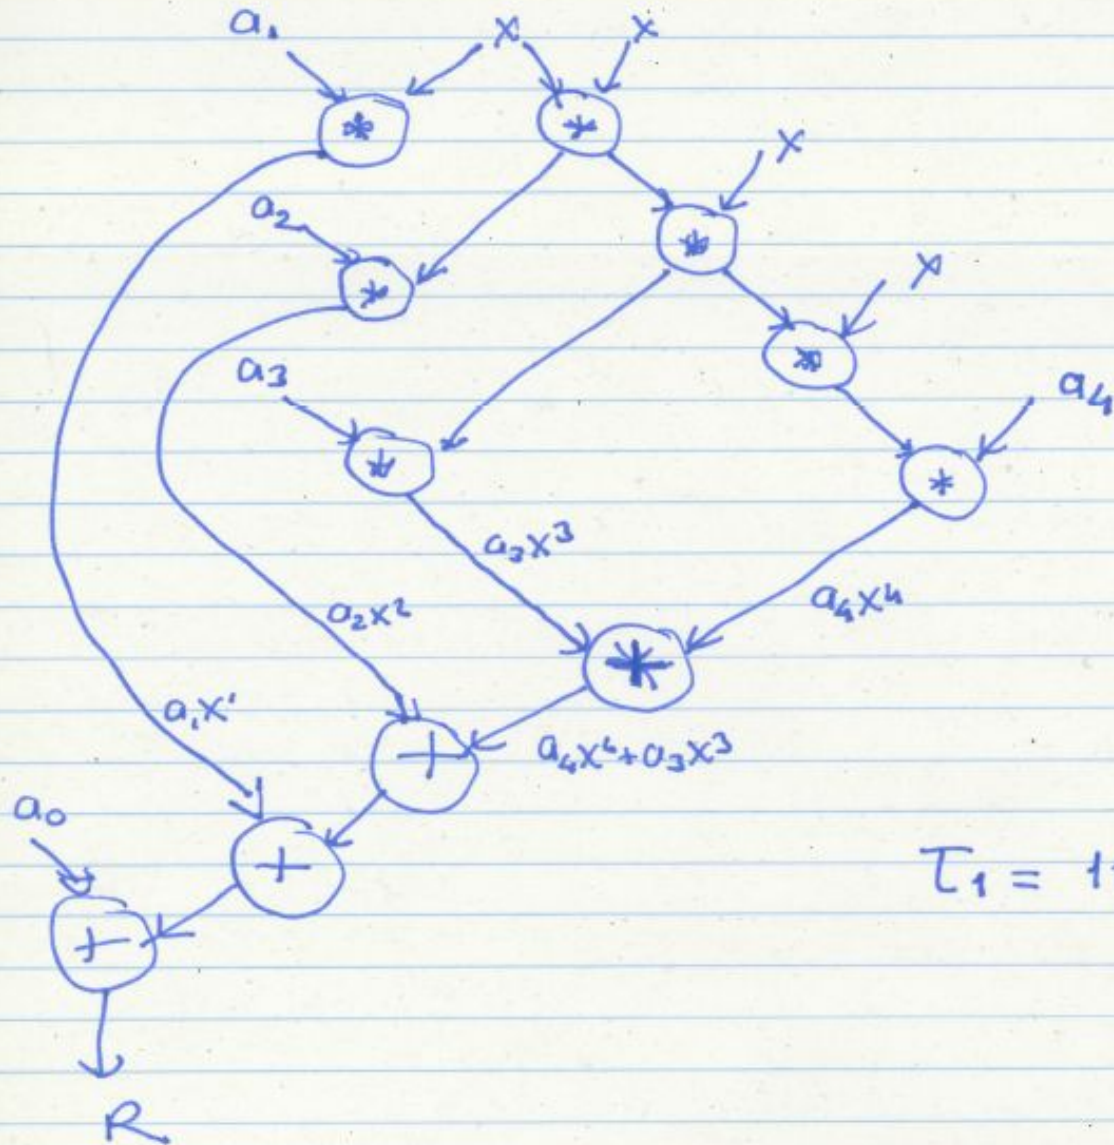 a₁ x x
* *
x
a₂
*
* x
a₃ *
a₄
* *
a₃x³
a₂x² a₄x⁴
*
a₁x¹
+ a₄x⁴+a₃x³
a₀
+ τ₁ = 1
+
R